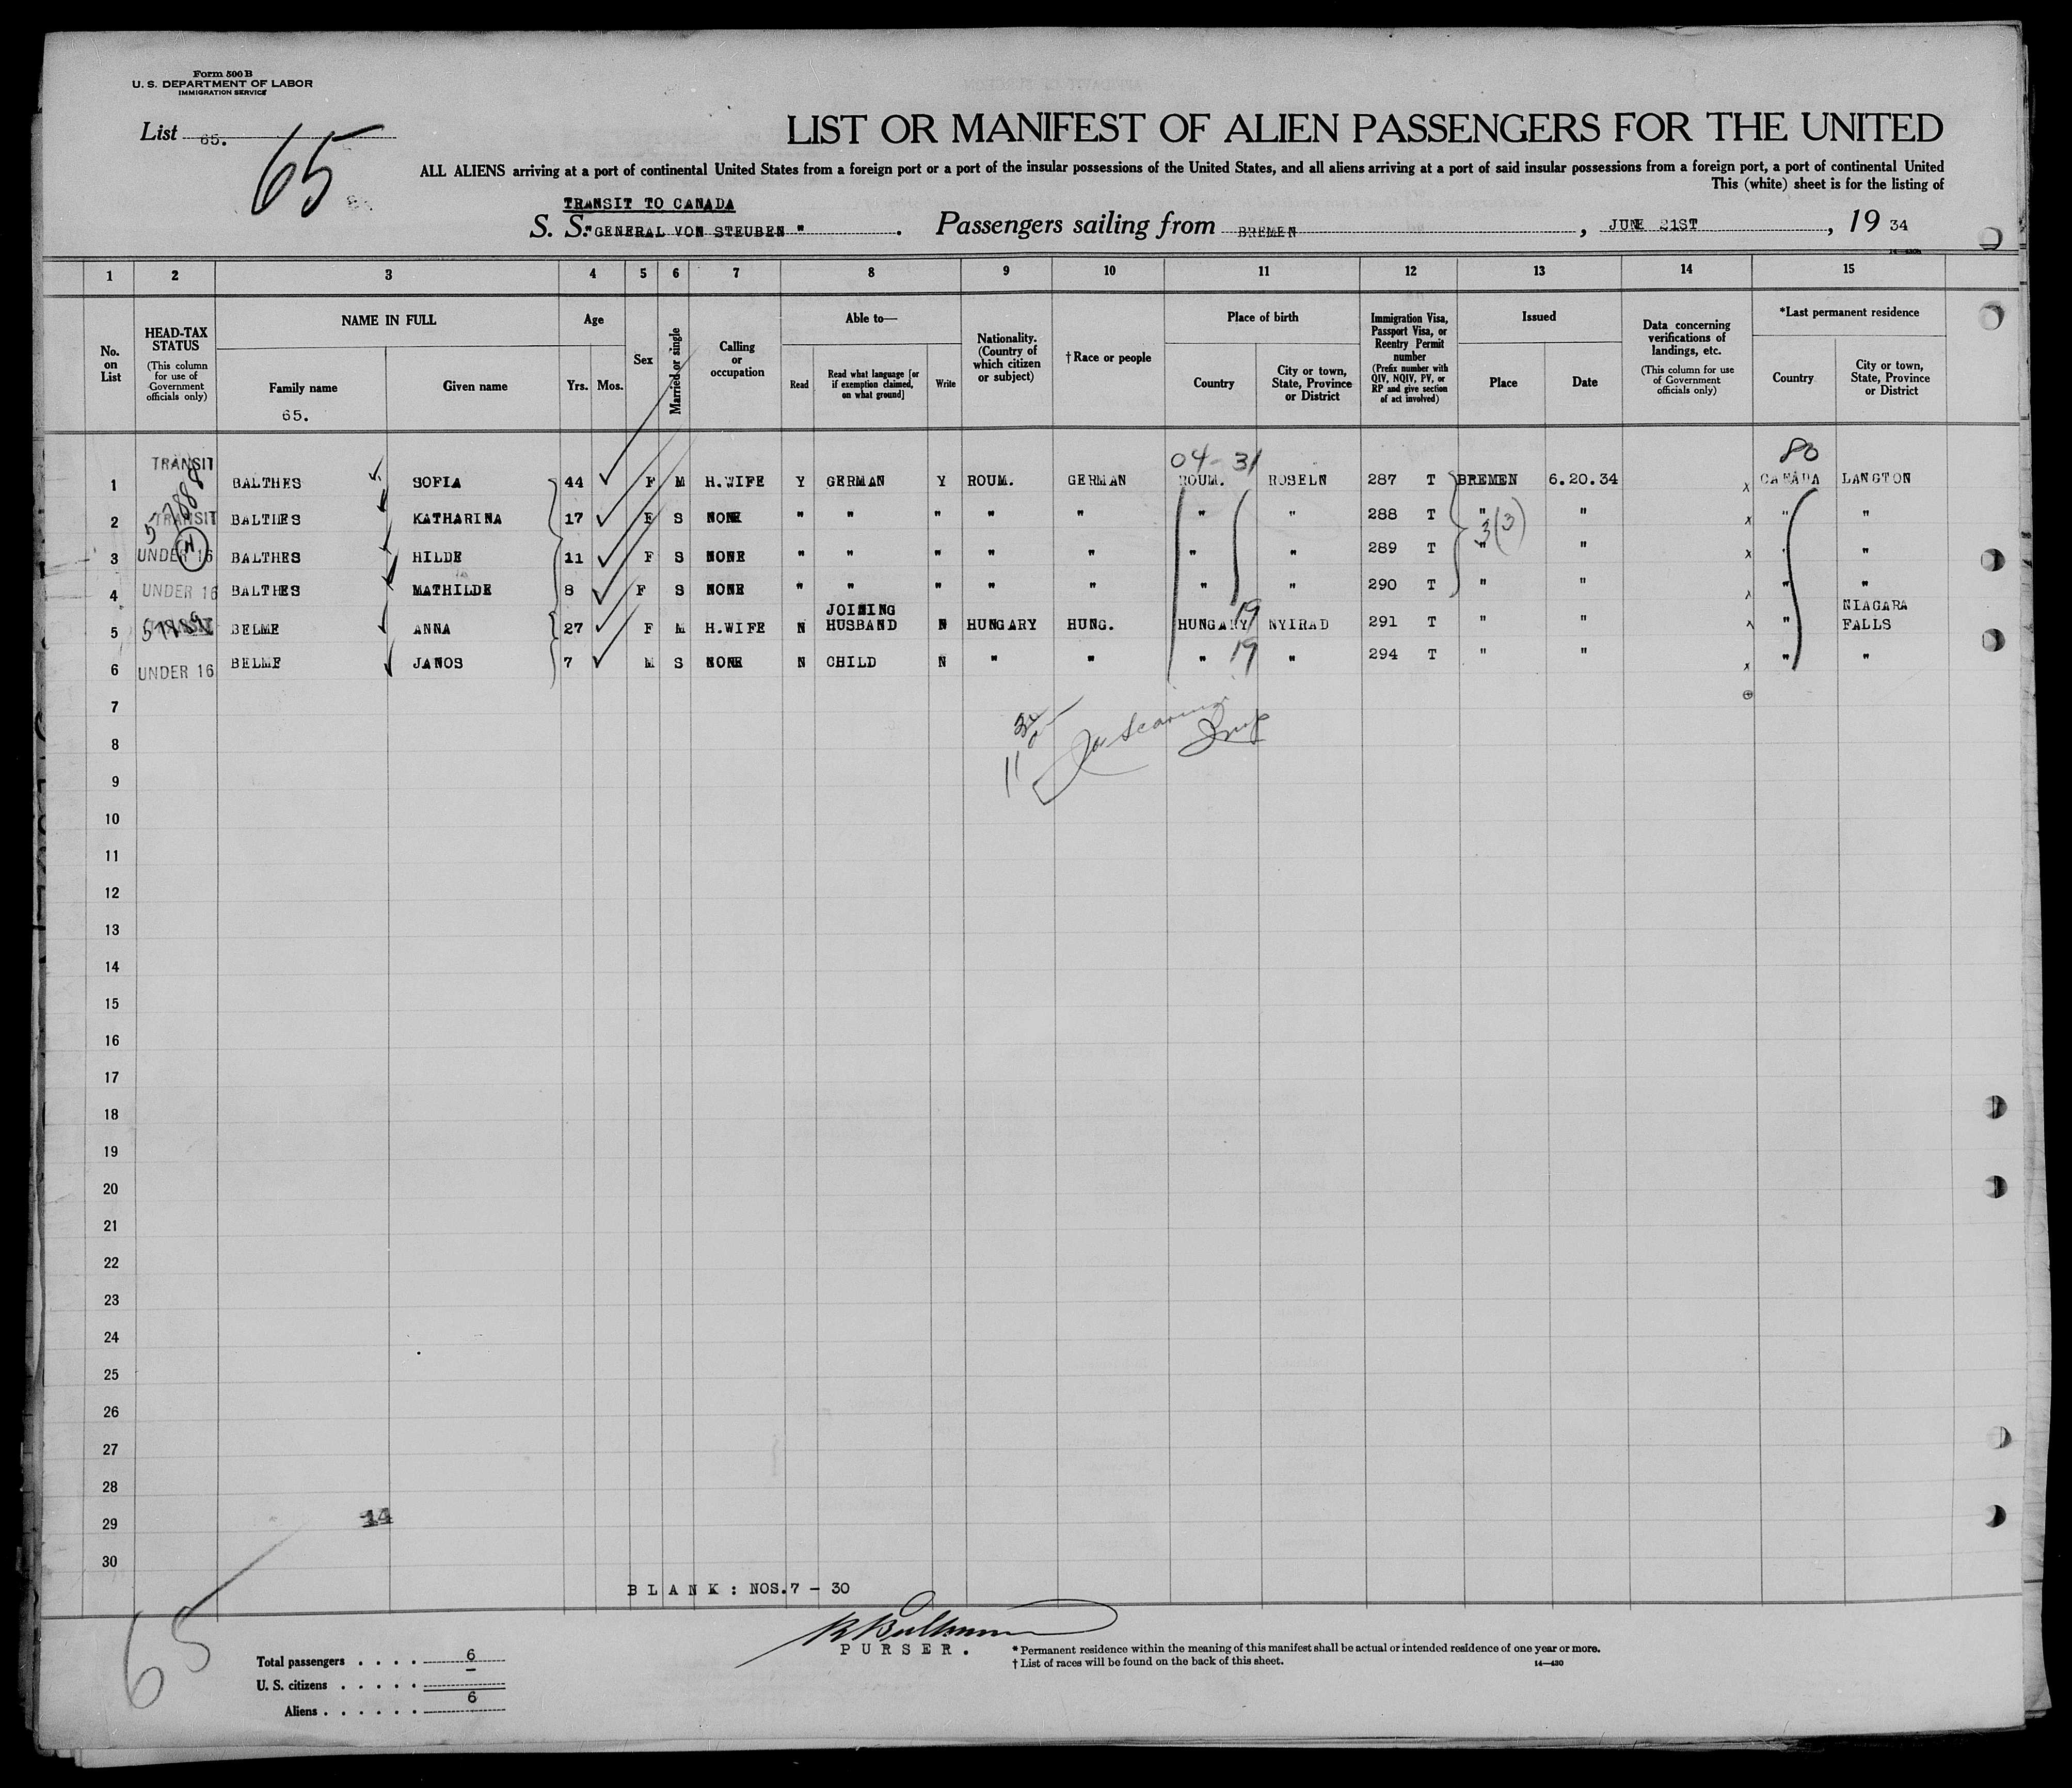 Form 500 B
U. S. DEPARTMENT OF LABOR
IMMIGRATION SERVICE
List 65.
65
LIST OR MANIFEST OF ALIEN PASSENGERS FOR THE UNITED
ALL ALIENS arriving at a port of continental United States from a foreign port or a port of the insular possessions of the United States, and all aliens arriving at a port of said insular possessions from a foreign port, a port of continental United
This (white) sheet is for the listing of
TRANSIT TO CANADA
S. S. "GENERAL VON STEUBEN". Passengers sailing from BREMEN, JUNE 21ST, 19 34
1 2 3 4 5 6 7 8 9 10 11 12 13 14 15
No. on List
HEAD-TAX STATUS (This column for use of Government officials only)
NAME IN FULL
Family name
Given name
65.
Age
Yrs. Mos.
Sex
Married or single
Calling or occupation
Able to—
Read
Read what language [or if exemption claimed, on what ground]
Write
Nationality. (Country of which citizen or subject)
† Race or people
Place of birth
Country
City or town, State, Province or District
Immigration Visa, Passport Visa, or Reentry Permit number (Prefix number with QIV, NQIV, PV, or RP and give section of act involved)
Issued
Place
Date
Data concerning verifications of landings, etc. (This column for use of Government officials only)
*Last permanent residence
Country
City or town, State, Province or District
04-31 80
1 TRANSIT BALTHES SOFIA 44 F M H.WIFE Y GERMAN Y ROUM. GERMAN ROUM. ROSELN 287 T BREMEN 6.20.34 x CANADA LANGTON
2 TRANSIT BALTHES KATHARINA 17 F S NONE " " " " " " " 288 T " " x " "
3 UNDER 16 BALTHES HILDE 11 F S NONE " " " " " " " 289 T " " x " "
3(3)
4 UNDER 16 BALTHES MATHILDE 8 F S NONE " " " " " " " 290 T " " " "
5 BELME ANNA 27 F M H.WIFE N JOINING HUSBAND N HUNGARY HUNG. HUNGARY 19 NYIRAD 291 T " " " NIAGARA FALLS
6 UNDER 16 BELME JANOS 7 M S NONE N CHILD N " " " 19 " 294 T " " x " "
7
8
9
10
11
12
13
14
15
16
17
18
19
20
21
22
23
24
25
26
27
28
29
30
14
BLANK: NOS.7 - 30
PURSER.
65
Total passengers . . . . 6
U. S. citizens . . . . . —
Aliens . . . . . . 6
* Permanent residence within the meaning of this manifest shall be actual or intended residence of one year or more.
† List of races will be found on the back of this sheet.
14—430